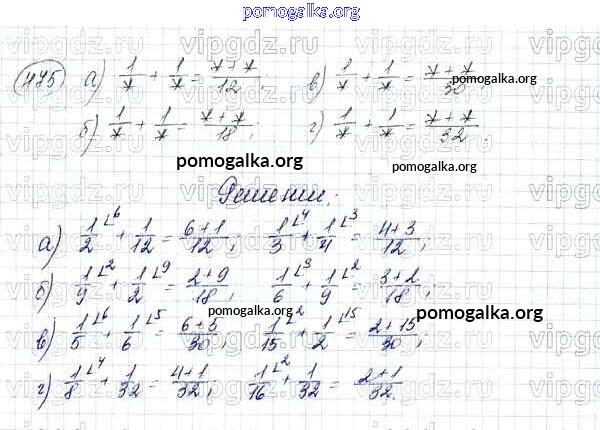 pomogalka.org
475 а) 1/* + 1/* = *+*/12; в) 1/* + 1/* = *+*/30;
pomogalka.org
б) 1/* + 1/* = *+*/18; г) 1/* + 1/* = *+*/32;
pomogalka.org pomogalka.org
Решении:
а) 1/2 ∟6 + 1/12 = 6+1/12; 1/3 ∟4 + 1/4 ∟3 = 4+3/12;
б) 1/9 ∟2 + 1/2 ∟9 = 2+9/18; 1/6 ∟3 + 1/9 ∟2 = 3+2/18;
pomogalka.org
в) 1/5 ∟6 + 1/6 ∟5 = 6+5/30; 1/15 ∟2 + 1/2 ∟15 = 2+15/30;
pomogalka.org
г) 1/8 ∟4 + 1/32 = 4+1/32; 1/16 ∟2 + 1/32 = 2+1/32.